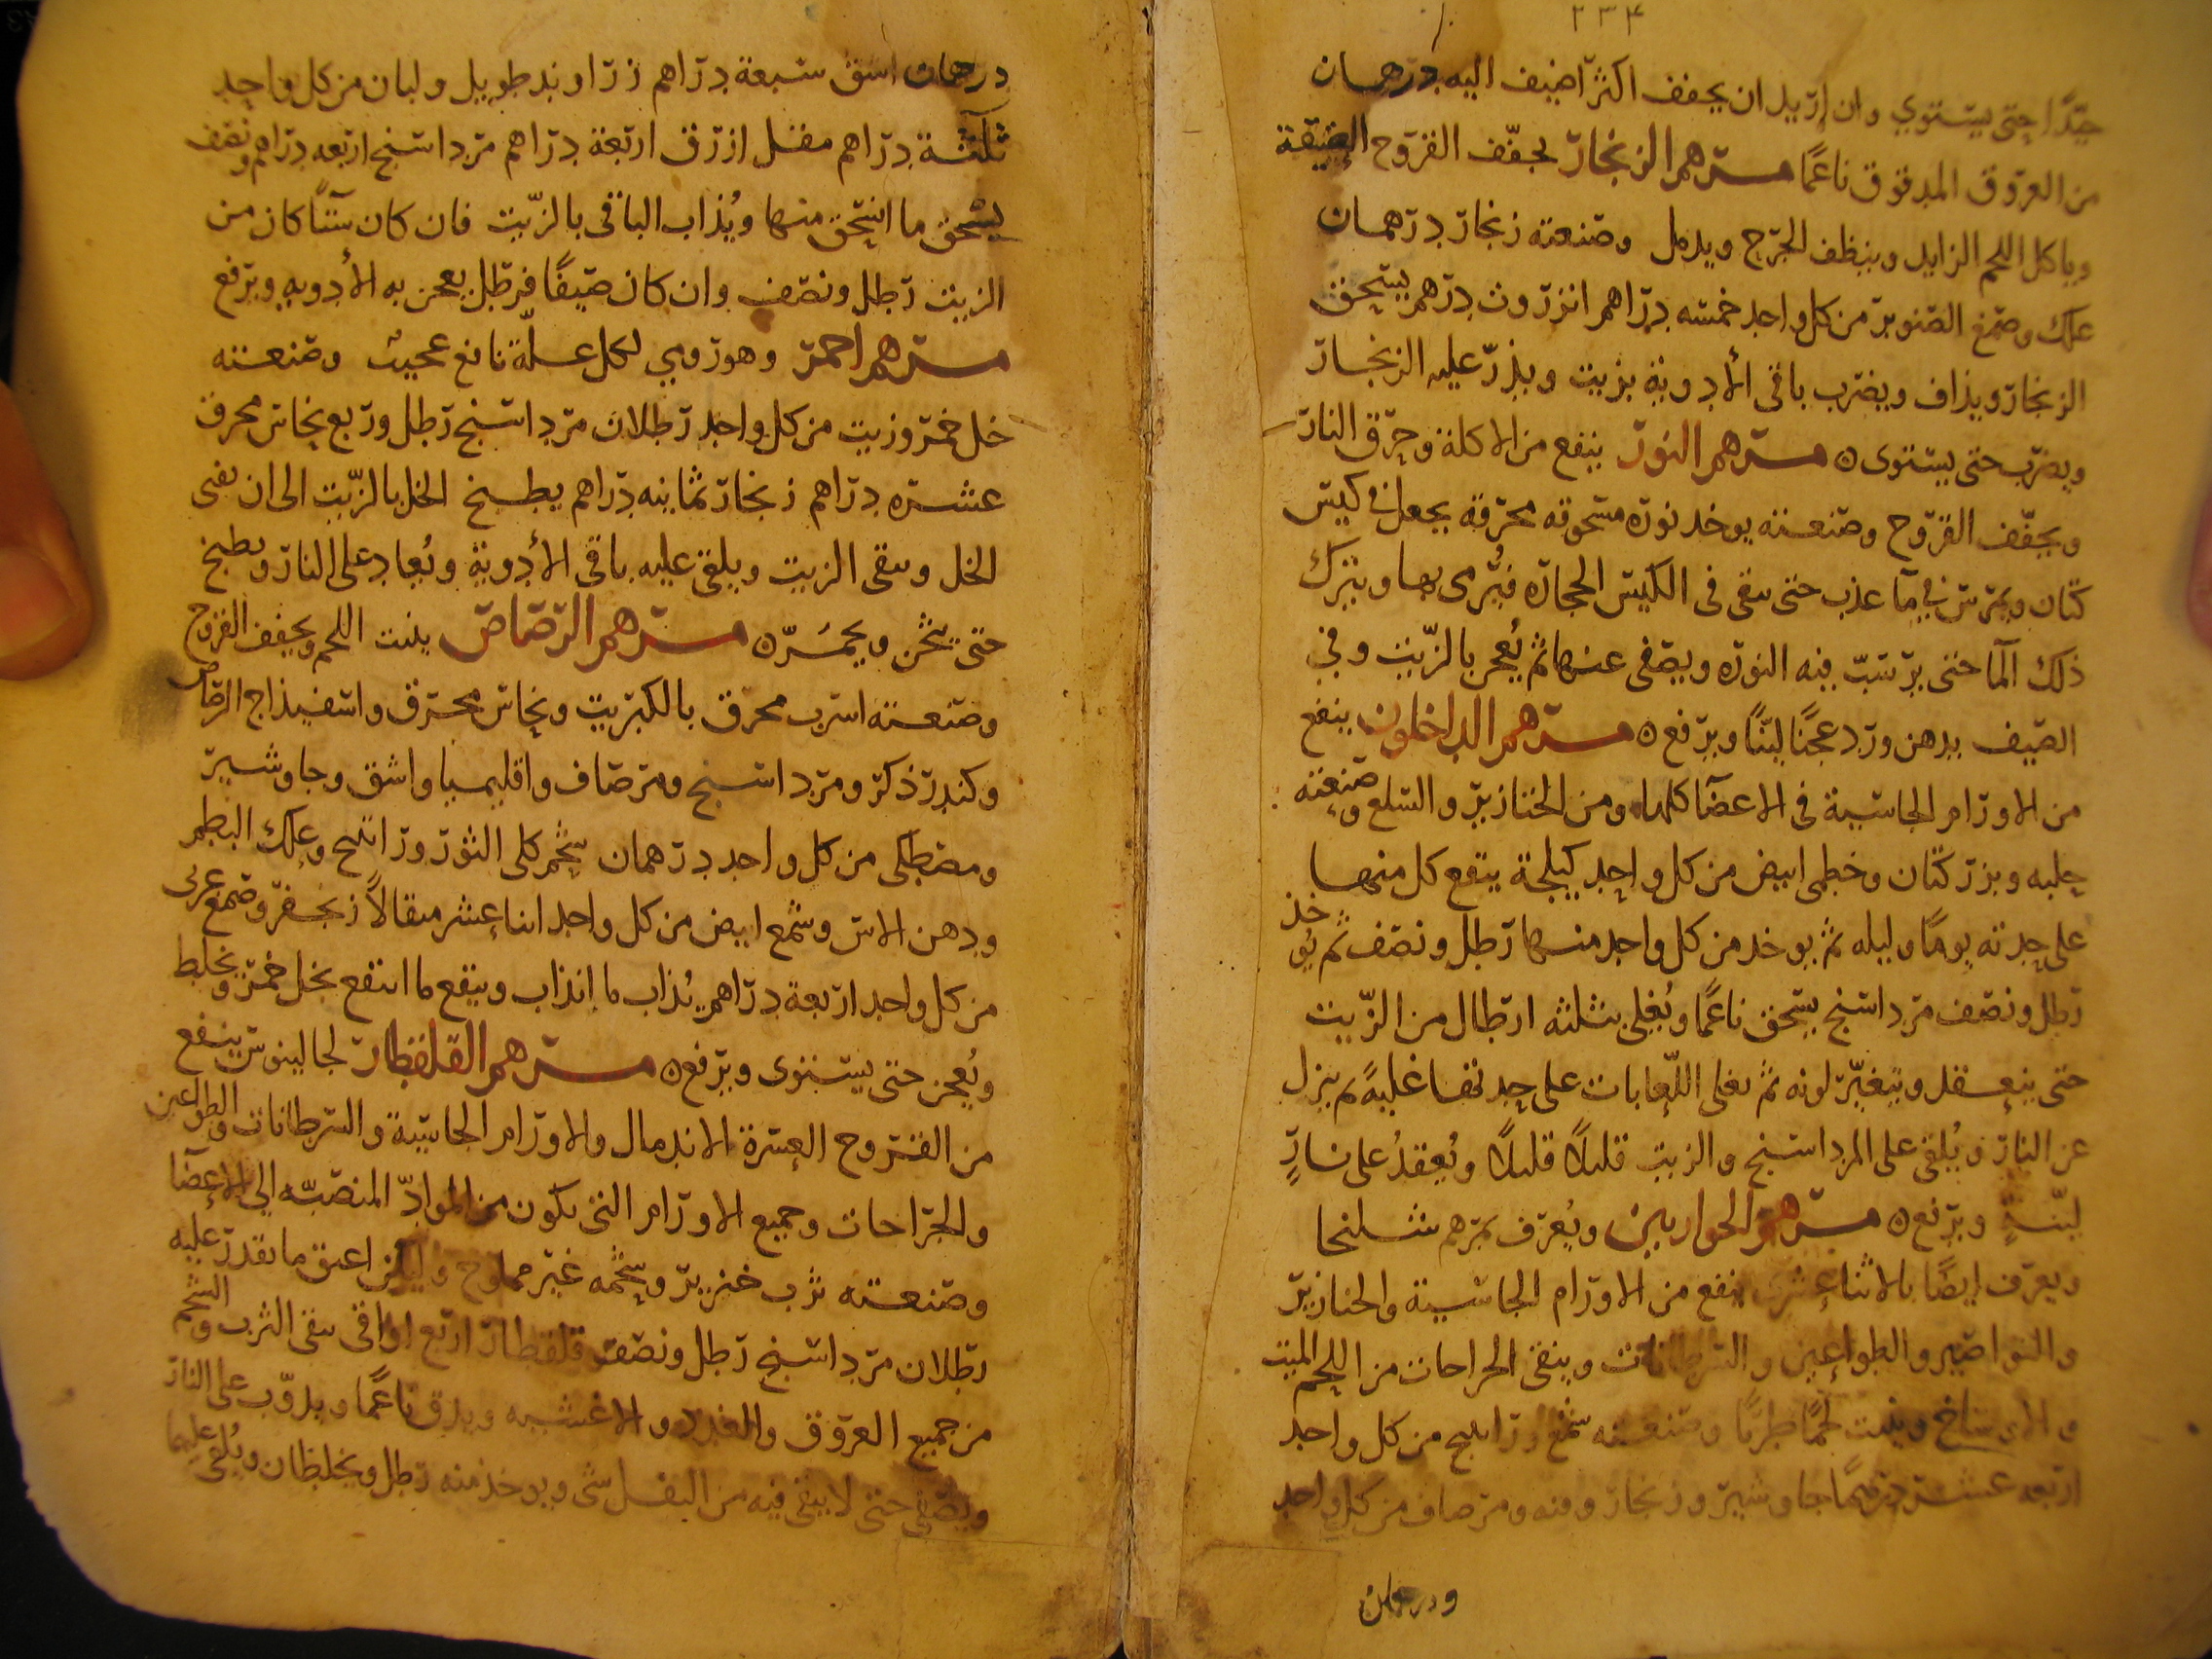 ٢٣٤
جيّدًا حتى يستوي وان اريد ان يجفف اكثر اضيف اليه درهمان
من العروق المدقوق ناعمًا مرهم الزنجار يجفّف القروح العتيقة
وياكل اللحم الزايد وينظف الجرح ويدمل وصنعته زنجار درهمان
علك وصمغ الصنوبر من كل واحد خمسه دراهم انزروت درهم يسحق
الزنجار ويذاف ويضرب باقي الأدوية بزيت ويذرّ عليه الزنجار
ويضرب حتى يستوى ٥ مرهم النورة ينفع من الاكلة وحرق النار
ويجفّف القروح وصنعته يوخد نوره مسحوقه محرقه يجعل في كيس
كتان ويمرس في مآ عذب حتى تبقى فى الكيس الحجاره فيُرمى بها ويترك
ذلك المآ حتى يرسبّ فيه النوره ويصفى عنها ثم يُعجن بالزّيت وفي
الصّيف بدهن ورد عجنًا ليّنًا ويرفع ٥ مرهم الداخلون ينفع
من الاورام الجاسية فى الاعضآ كلها ومن الخنازير والسلع وصنعته
حلبه وبزر كتّان وخطمى ابيض من كل واحد كيلجة ينقع كل منها
على حدته يومًا وليله ثم يوخد من كل واحد منها رطل ونصف ثم يوخذ
رطل ونصف مرداسنج يسحق ناعمًا ويُغلى بثلثه ارطال من الزّيت
حتى ينعقد ويتغيّر لونه ثم تغلى اللّعابات على حدتها غليةً ثم ينزل
عن النار ويُلقى على المرداسنج والزيت قليلًا قليلًا ويُعقدُ على نارٍ
ليّنةٍ ويرفع ٥ مرهم الحواريين ويُعرف بمرهم شليخا
ويعرف ايضًا بالاثنا عشرى ينفع من الاورام الجاسية والخنازير
والنواصير والطواعين والسرطانات وينقى الجراحات من اللحم الميت
والاوساخ وينبت لحمًا طريًّا وصنعته شمع وراتينج من كل واحد
اربعه عشر درهمًا جاوشير وزنجار وقنه ومرصاف من كل واحد
ودرهمان
درهمان اشق سبعة دراهم زراوند طويل ولبان من كل واحد
ثلثة دراهم مقل ازرق اربعة دراهم مرداسنج اربعه دراهم ونصف
يسحق ما انسحق منها ويُذاب الباقى بالزّيت فان كان شتآً كان من
الزيت رطل ونصف وان كان صيفًا فرطل يعجن به الأدويه ويرفع
مرهم احمر وهو رومي لكل علّة نافع عجيب وصنعته
خل خمر وزيت من كل واحد رطلان مرداسنج رطل وربع نحاس محرق
عشره دراهم زنجار ثمانيه دراهم يطبخ الخل بالزّيت الى ان يفنى
الخل ويبقى الزيت ويلقى عليه باقى الأدوية ويُعاد على النار ويطبخ
حتى يثخن ويحمرّ ٥ مرهم الرصاص ينبت اللحم ويجفف القروح
وصنعته اسرب محرق بالكبريت ونحاس محرق واسفيذاج الرصاص
وكندر ذكر ومرداسنج ومرصاف واقليميا واشق وجاوشير
ومصطكى من كل واحد درهمان شحم كلى الثور وراتينج وعلك البطم
ودهن الاس وشمع ابيض من كل واحد اثنا عشر مثقالاً زنجفر وصمغ عربى
من كل واحد اربعة دراهم يُذاب ما انذاب وينقع ما انتقع بخل خمر ويخلط
ويُعجن حتى يستوى ويرفع ٥ مرهم القلقطار لجالينوس ينفع
من القروح العسرة الاندمال والاورام الجاسية والسرطانات والطواعين
والجراحات وجميع الاورام التى تكون من الموادّ المنصبّه الى الاعضآ
وصنعته ثرب خنزير وشحمه غير مملوح وليكن اعتق ما تقدر عليه
رطلان مرداسنج رطل ونصف قلقطار اربع اواقى ينقى الثرب والشحم
من جميع العروق والغدد والاغشيه ويدق ناعمًا ويذوّب على النار
ويصفى حتى لا يبقى فيه من الثفل شى ويوخذ منه رطل ويخلطان ويُلقى عليها